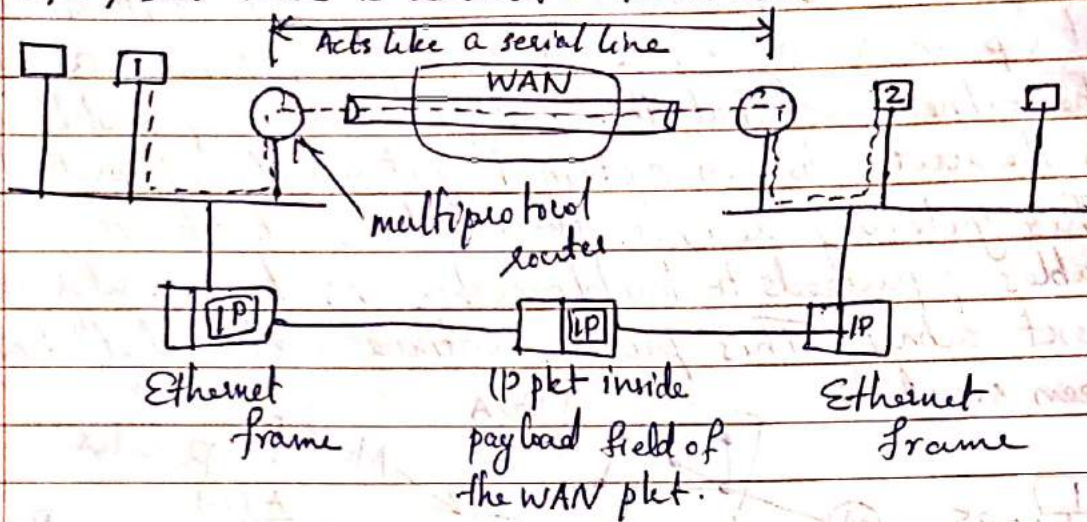 Acts like a serial line
WAN
1
2
multiprotocol
router
IP
IP
IP
Ethernet
frame
IP pkt inside
payload field of
the WAN pkt.
Ethernet
frame